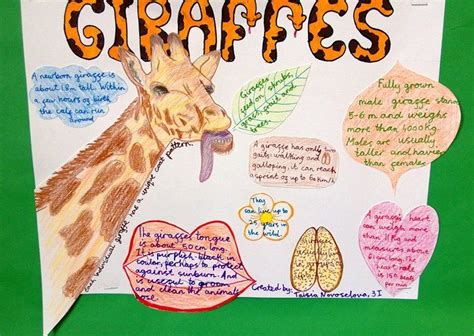 GIRAFFES
A newborn giraffe is
about 1.8m tall. Within
a few hours of birth
the calf can run
around
Giraffes
feed on shrubs,
grass, fruit and
trees
Fully grown
male giraffe stand
5-6 m and weighs
more than 1000kg.
Males are usually
taller and heavier
than females
A giraffe has only two
gaits: walking and
galloping, it can reach
a sprint of up to 60 km/h
Each individual giraffe has a unique coat pattern.
They
can live up to
25 years in
the wild.
The giraffes tongue
is about 50cm long.
It is purplish-black in
colour, perhaps to protect
against sunburn. And
is useful to groom
and clean the animals
nose.
A giraffe's heart
can weigh more
than 11 kg and
measures about
61cm long. The
heart rate
is 150 beats
per min
Created by:
Taisia Novoselova, 3I